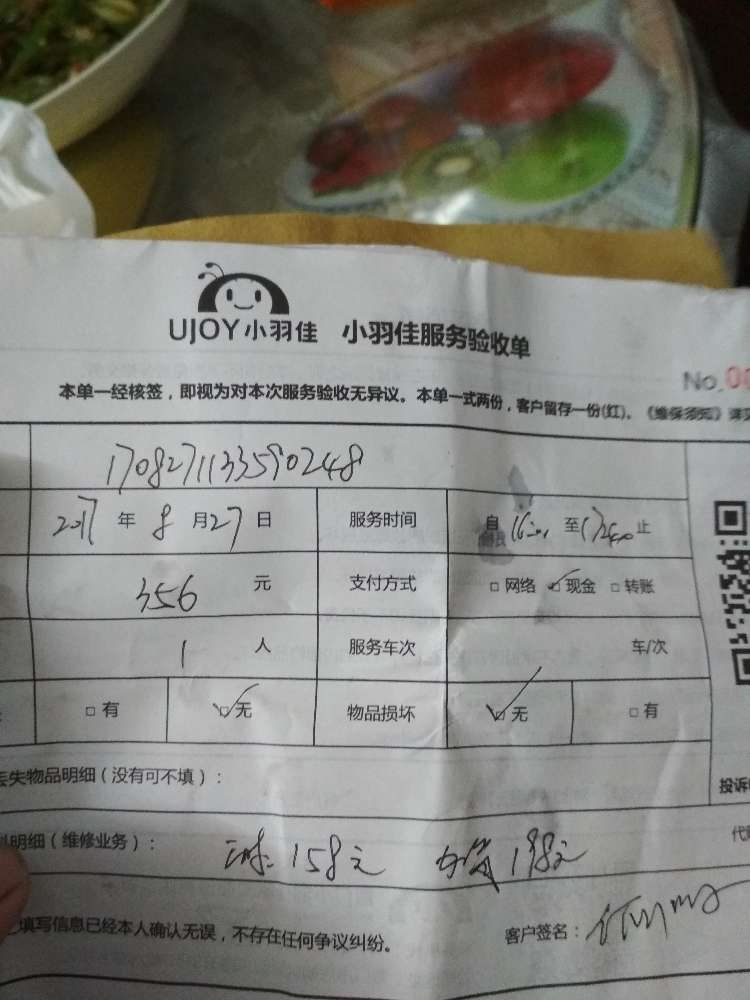 UJOY小羽佳 小羽佳服务验收单
No.00
本单一经核签，即视为对本次服务验收无异议。本单一式两份，客户留存一份(红)。《维保须知》详见
1708271133590248
2017 年 8 月 27 日 服务时间 自 至 止
356 元 支付方式 □ 网络 ☑ 现金 □ 转账
1 人 服务车次 车/次
□ 有 ☑ 无 物品损坏 ☑ 无 □ 有
丢失物品明细（没有可不填）：
投诉
料明细（维修业务）： 158元 198元
代
填写信息已经本人确认无误，不存在任何争议纠纷。
客户签名：